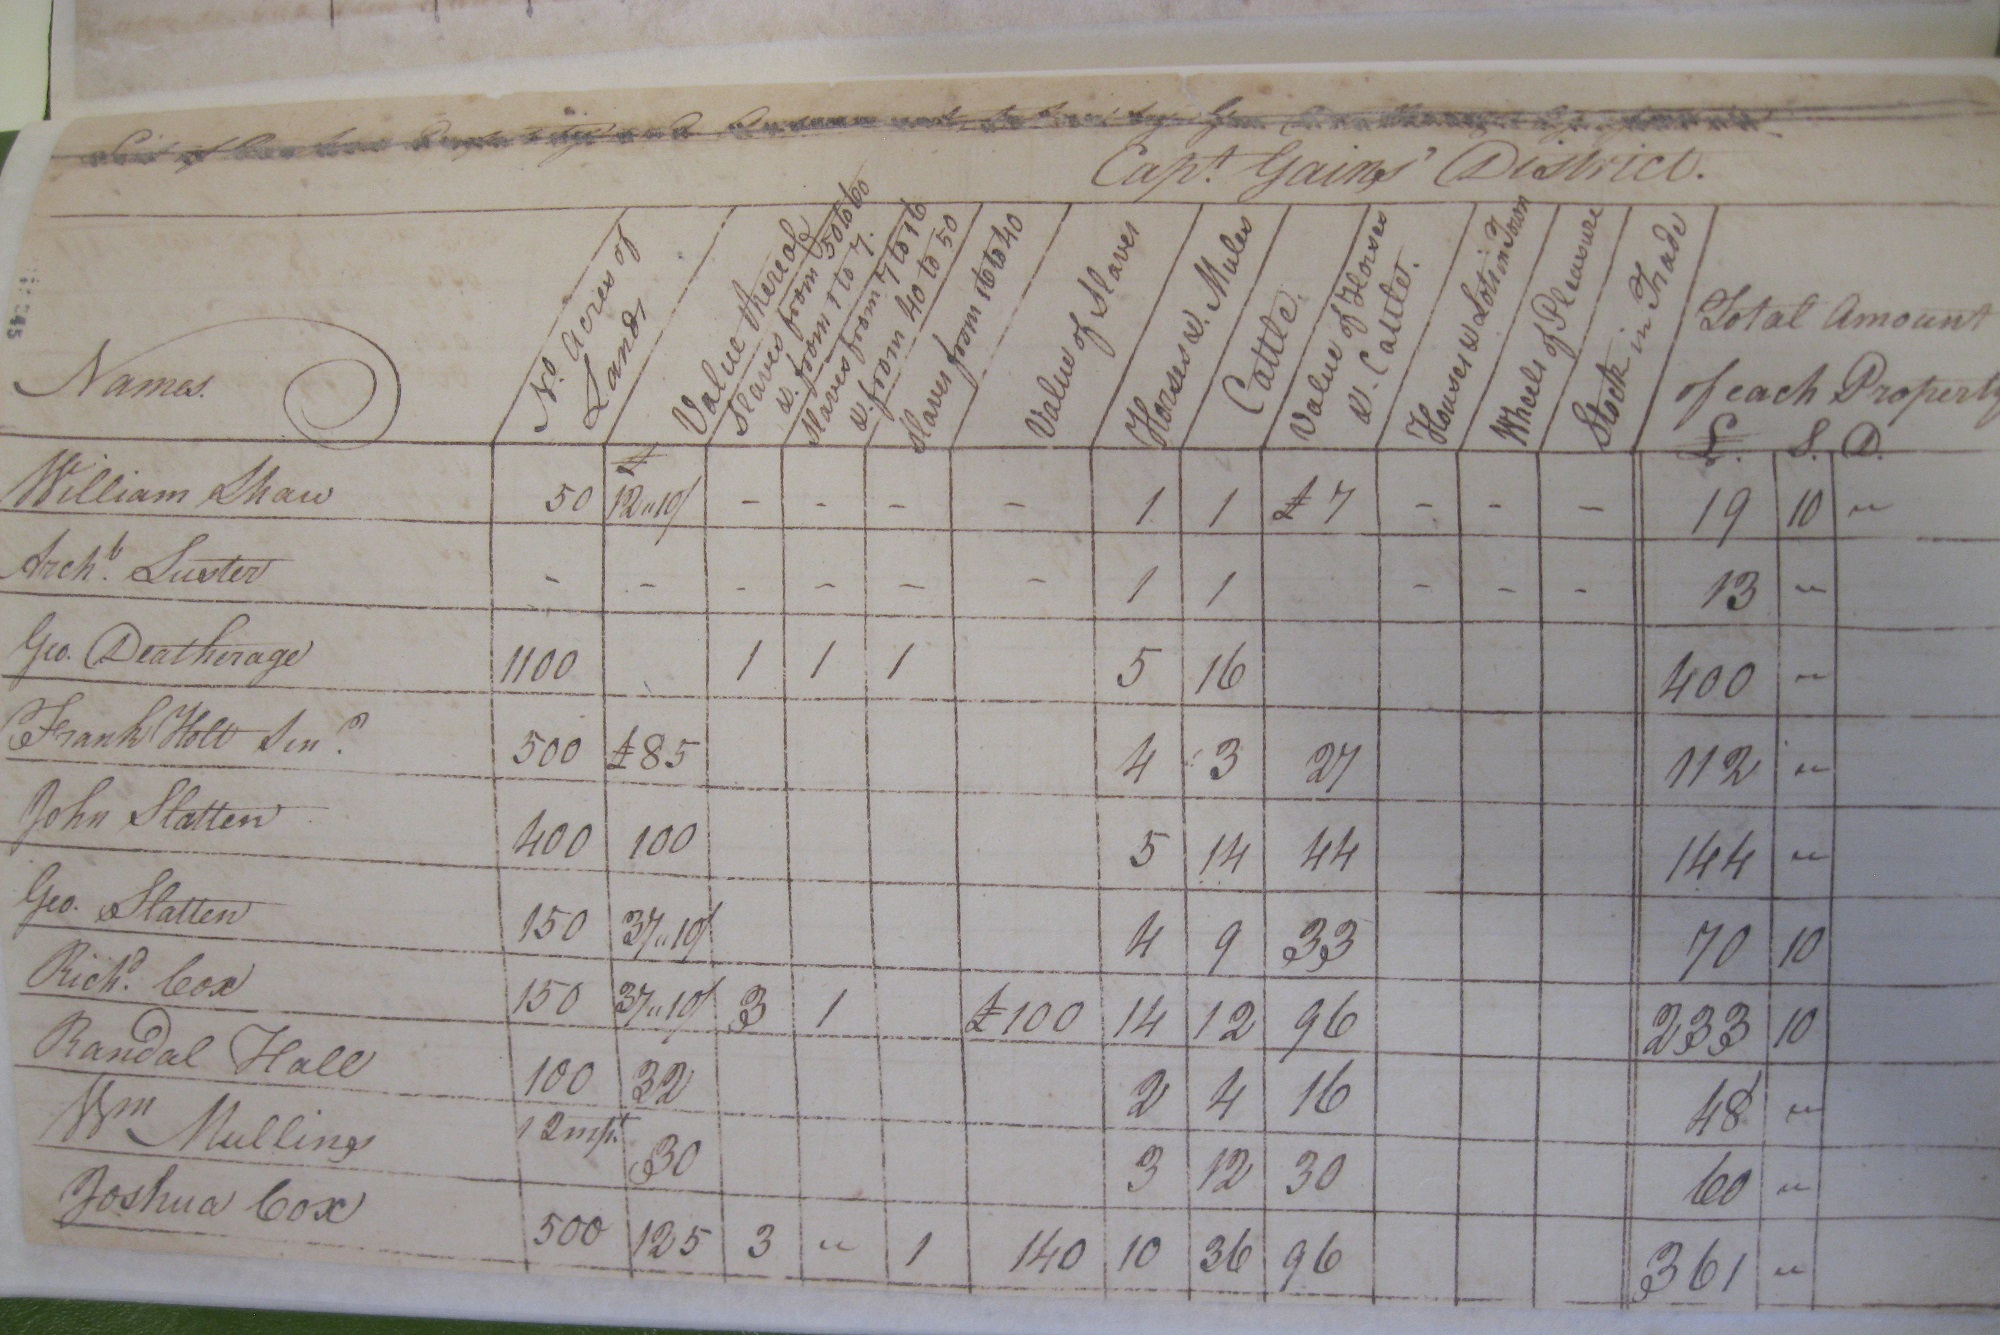 List of Taxable Property
Capt. Gains' District.
Names.
No. Acres of Land,
Value thereof
Slaves from 50 to 60 & from 1 to 7.
Slaves from 7 to 16 & from 40 to 50
Slaves from 16 to 40
Value of Slaves
Horses & Mules
Cattle
Value of Horses & Cattle.
Houses & Lots in Town
Wheels of Pleasure
Stock in Trade
Total Amount of each Property
£. S. D.
William Shaw 50 £ 12"10/ - - - - 1 1 £7 - - - 19 10 "
Archb. Luster - - - - - - 1 1 - - - 13 "
Geo. Deatherage 1100 1 1 1 5 16 400 "
Frank Holt Senr 500 £85 4 3 27 112 "
John Slatten 400 100 5 14 44 144 "
Geo. Slatten 150 37"10/ 4 9 33 70 10
Richd. Cox 150 37"10/ 3 1 £100 14 12 96 233 10
Randal Hall 100 32 2 4 16 48 "
Wm Mullings 30 3 12 30 60 "
Joshua Cox 500 125 3 " 1 140 10 36 96 361 "